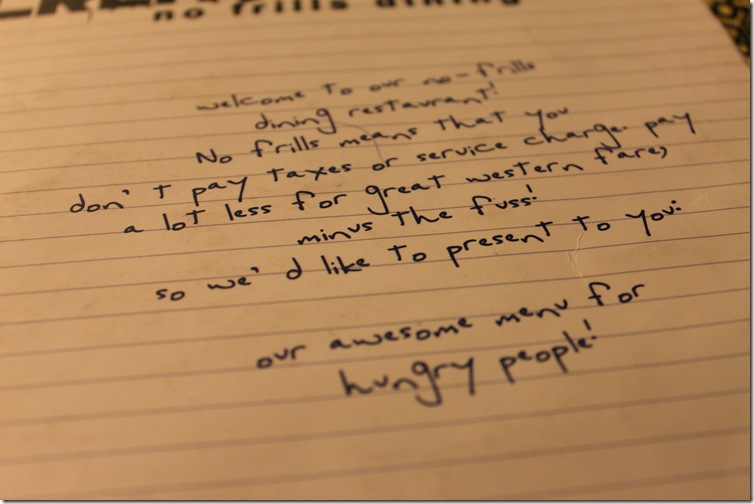 no frills dining
welcome to our no-frills
dining restaurant!
No frills means that you
don't pay taxes or service charge. pay
a lot less for great western fare,
minus the fuss!
so we'd like to present to you:
our awesome menu for
hungry people!